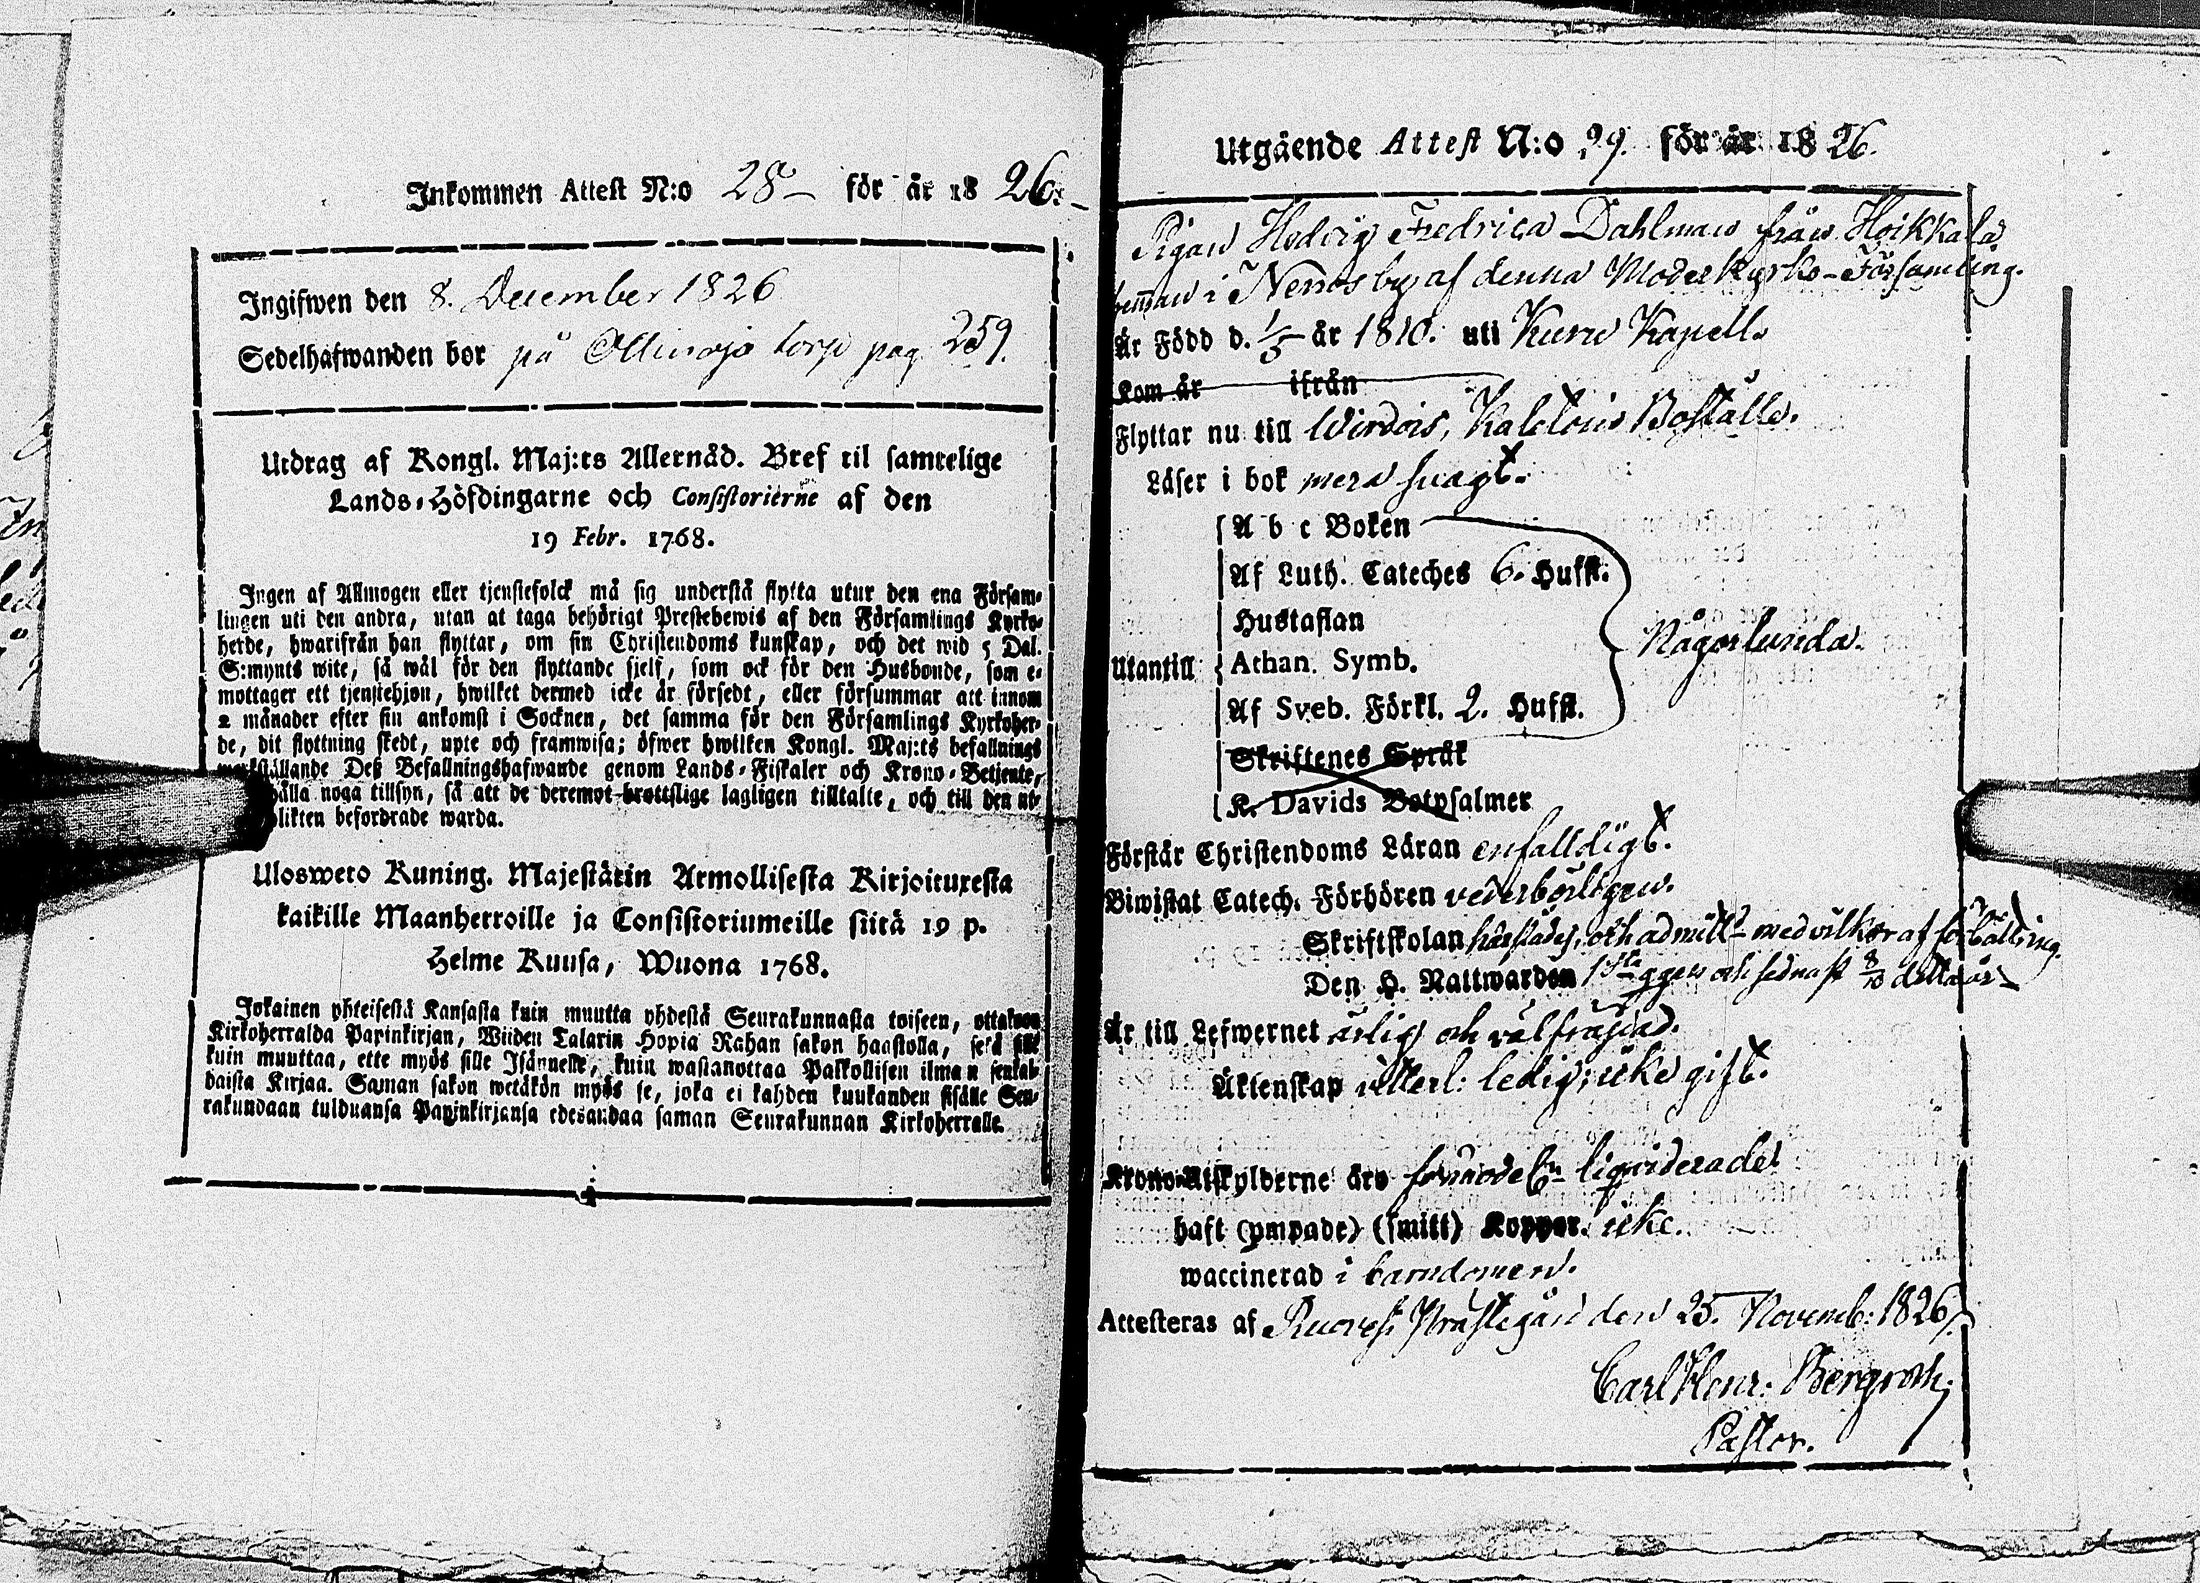 Inkommen Attest N:o 28 för år 1826.
Ingifwen den 8. December 1826
Sedelhafwanden bor på torp pag. 259.
Utdrag af Kongl. Maj:ts Allernåd. Bref til samtelige
Lands-Höfdingarne och Consistorierne af den
19 Febr. 1768.
Ingen af Allmogen eller tjenstefolck må sig understå flytta utur den ena Försam-
lingen uti den andra, utan at taga behörigt Prestebewis af den Församlings Kyrko-
herde, hwarifrån han flyttar, om sin Christendoms kunskap, och det wid 5 Dal.
S:mynts wite, så wäl för den flyttande sjelf, som ock för den Husbonde, som e-
mottager ett tjenstehjon, hwilket dermed icke är försedt, eller försummar att innom
2 månader efter sin ankomst i Socknen, det samma för den Församlings Kyrkoher-
de, dit flyttning skedt, upte och framwisa; öfwer hwilken Kongl. Maj:ts befallnings
werkställande Deß Befallningshafwande genom Lands-Fiskaler och Krono-Betjente,
hålla noga tillsyn, så att de deremot brottslige lagligen tilltalte, och till den ut-
plikten befordrade warda.
Ulosweto Kuning. Majestätin Armollisesta Kirjoituxesta
kaikille Maanherroille ja Consistoriumeille siitä 19 p.
Helme Kuusa, Wuona 1768.
Jokainen yhteisestä Kansasta kuin muutta yhdestä Seurakunnasta toiseen, ottakoon
Kirkoherralda Papinkirjan, Wiiden Talarin Hopia Rahan sakon haastolla, sekä sille
kuin muuttaa, ette myös sille Isännelle, kuin wastanottaa Palkollisen ilman senkal-
daista Kirjaa. Saman sakon wetäkön myös se, joka ei kahden kuukauden sisälle Seu-
rakundaan tulduansa Papinkirjansa edesandaa saman Seurakunnan Kirkoherralle.
Utgående Attest N:o 29. för år 1826.
Pigan Hedvig Fredrica Dahlman från Heikkala
hemman i Nenos by af denna Moderkyrko-Församling.
Är Född d. 1/5 år 1810. uti Kuru Kapell.
Kom år ifrån
Flyttar nu till Wirdois, Boställe.
Läser i bok mera svagt.
A b c Boken
Af Luth. Cateches 6. Hufst.
Hustaflan
Utantill Någorlunda.
Athan. Symb.
Af Sveb. Förkl. 2. Hufst.
Skriftenes Språk
K. Davids Botpsalmer
Förstår Christendoms Läran enfalldigt.
Biwistat Catech. Förhören vederbörligen.
Skriftskolan härstädes, och admitt. med vilkor af förbättring.
Den H. Nattwarden 1sta ggen och sednast 8/10 detta år
Är till Lefwernet ärlig och välfräjdad.
Äktenskap veterl: ledig; icke gift.
Krono-Utskylderne äro förmodel:n liqviderade.
haft (ympade) (smitt) Koppor. icke.
waccinerad i barndomen.
Attesteras af Ruovesi Prästegård den 25. Novemb: 1826.
Carl Henr: Bergroth;
Pastor.